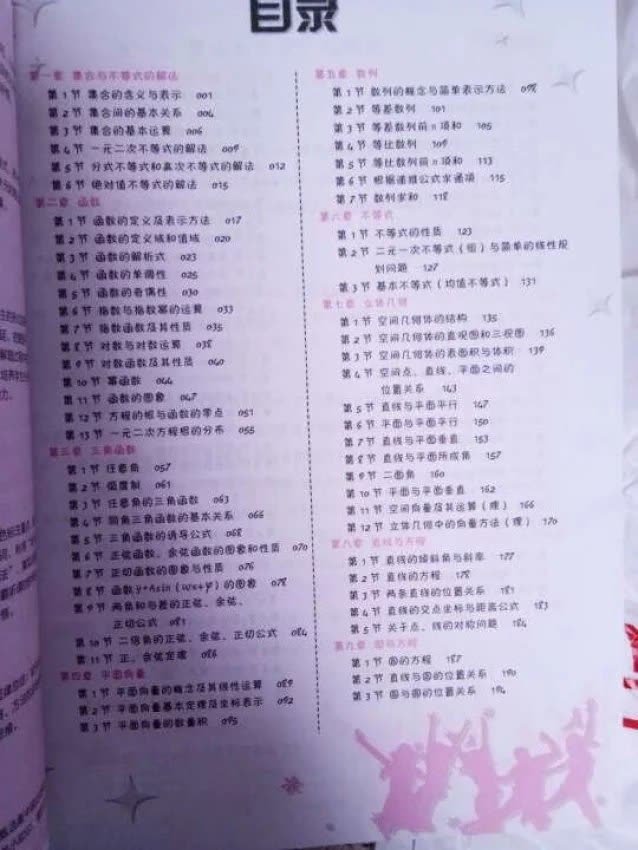 目录
第一章 集合与不等式的解法
第1节 集合的含义与表示 001
第2节 集合间的基本关系 004
第3节 集合的基本运算 006
第4节 一元二次不等式的解法 009
第5节 分式不等式和高次不等式的解法 012
第6节 绝对值不等式的解法 015
第二章 函数
第1节 函数的定义及表示方法 017
第2节 函数的定义域和值域 020
第3节 函数的解析式 023
第4节 函数的单调性 025
第5节 函数的奇偶性 030
第6节 指数与指数幂的运算 033
第7节 指数函数及其性质 035
第8节 对数与对数运算 038
第9节 对数函数及其性质 040
第10节 幂函数 044
第11节 函数的图象 047
第12节 方程的根与函数的零点 051
第13节 一元二次方程根的分布 055
第三章 三角函数
第1节 任意角 057
第2节 弧度制 061
第3节 任意角的三角函数 063
第4节 同角三角函数的基本关系 066
第5节 三角函数的诱导公式 068
第6节 正弦函数、余弦函数的图象和性质 070
第7节 正切函数的图象与性质 076
第8节 函数y=Asin(ωx+φ)的图象 078
第9节 两角和与差的正弦、余弦、
正切公式 081
第10节 二倍角的正弦、余弦、正切公式 084
第11节 正、余弦定理 086
第四章 平面向量
第1节 平面向量的概念及其线性运算 089
第2节 平面向量基本定理及坐标表示 092
第3节 平面向量的数量积 095
第五章 数列
第1节 数列的概念与简单表示方法 098
第2节 等差数列 101
第3节 等差数列前n项和 105
第4节 等比数列 109
第5节 等比数列前n项和 113
第6节 根据递推公式求通项 115
第7节 数列求和 118
第六章 不等式
第1节 不等式的性质 123
第2节 二元一次不等式(组)与简单的线性规
划问题 127
第3节 基本不等式(均值不等式) 131
第七章 立体几何
第1节 空间几何体的结构 135
第2节 空间几何体的直观图和三视图 136
第3节 空间几何体的表面积与体积 139
第4节 空间点、直线、平面之间的
位置关系 143
第5节 直线与平面平行 147
第6节 平面与平面平行 150
第7节 直线与平面垂直 153
第8节 直线与平面所成角 157
第9节 二面角 160
第10节 平面与平面垂直 162
第11节 空间向量及其运算(理) 166
第12节 立体几何中的向量方法(理) 170
第八章 直线与方程
第1节 直线的倾斜角与斜率 177
第2节 直线的方程 178
第3节 两条直线的位置关系 181
第4节 直线的交点坐标与距离公式 183
第5节 关于点、线的对称问题 184
第九章 圆与方程
第1节 圆的方程 187
第2节 直线与圆的位置关系 190
第3节 圆与圆的位置关系 194